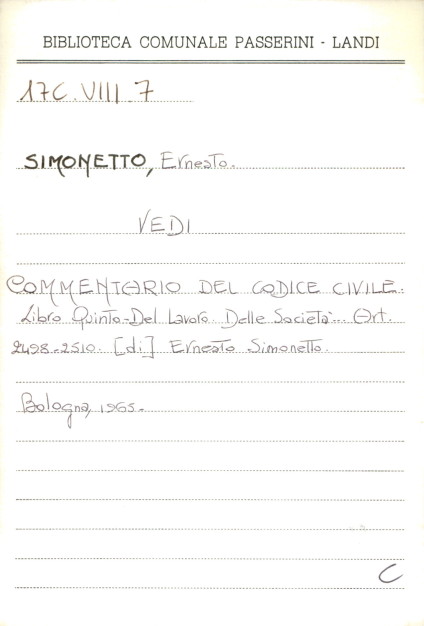 BIBLIOTECA COMUNALE PASSERINI - LANDI
17C.VIII.7
SIMONETTO, Ernesto.
VEDI
COMMENTARIO DEL CODICE CIVILE.
Libro Quinto-Del Lavoro. Delle Società... Art.
2498-2510. [di] Ernesto Simonetto.
Bologna, 1965.
C